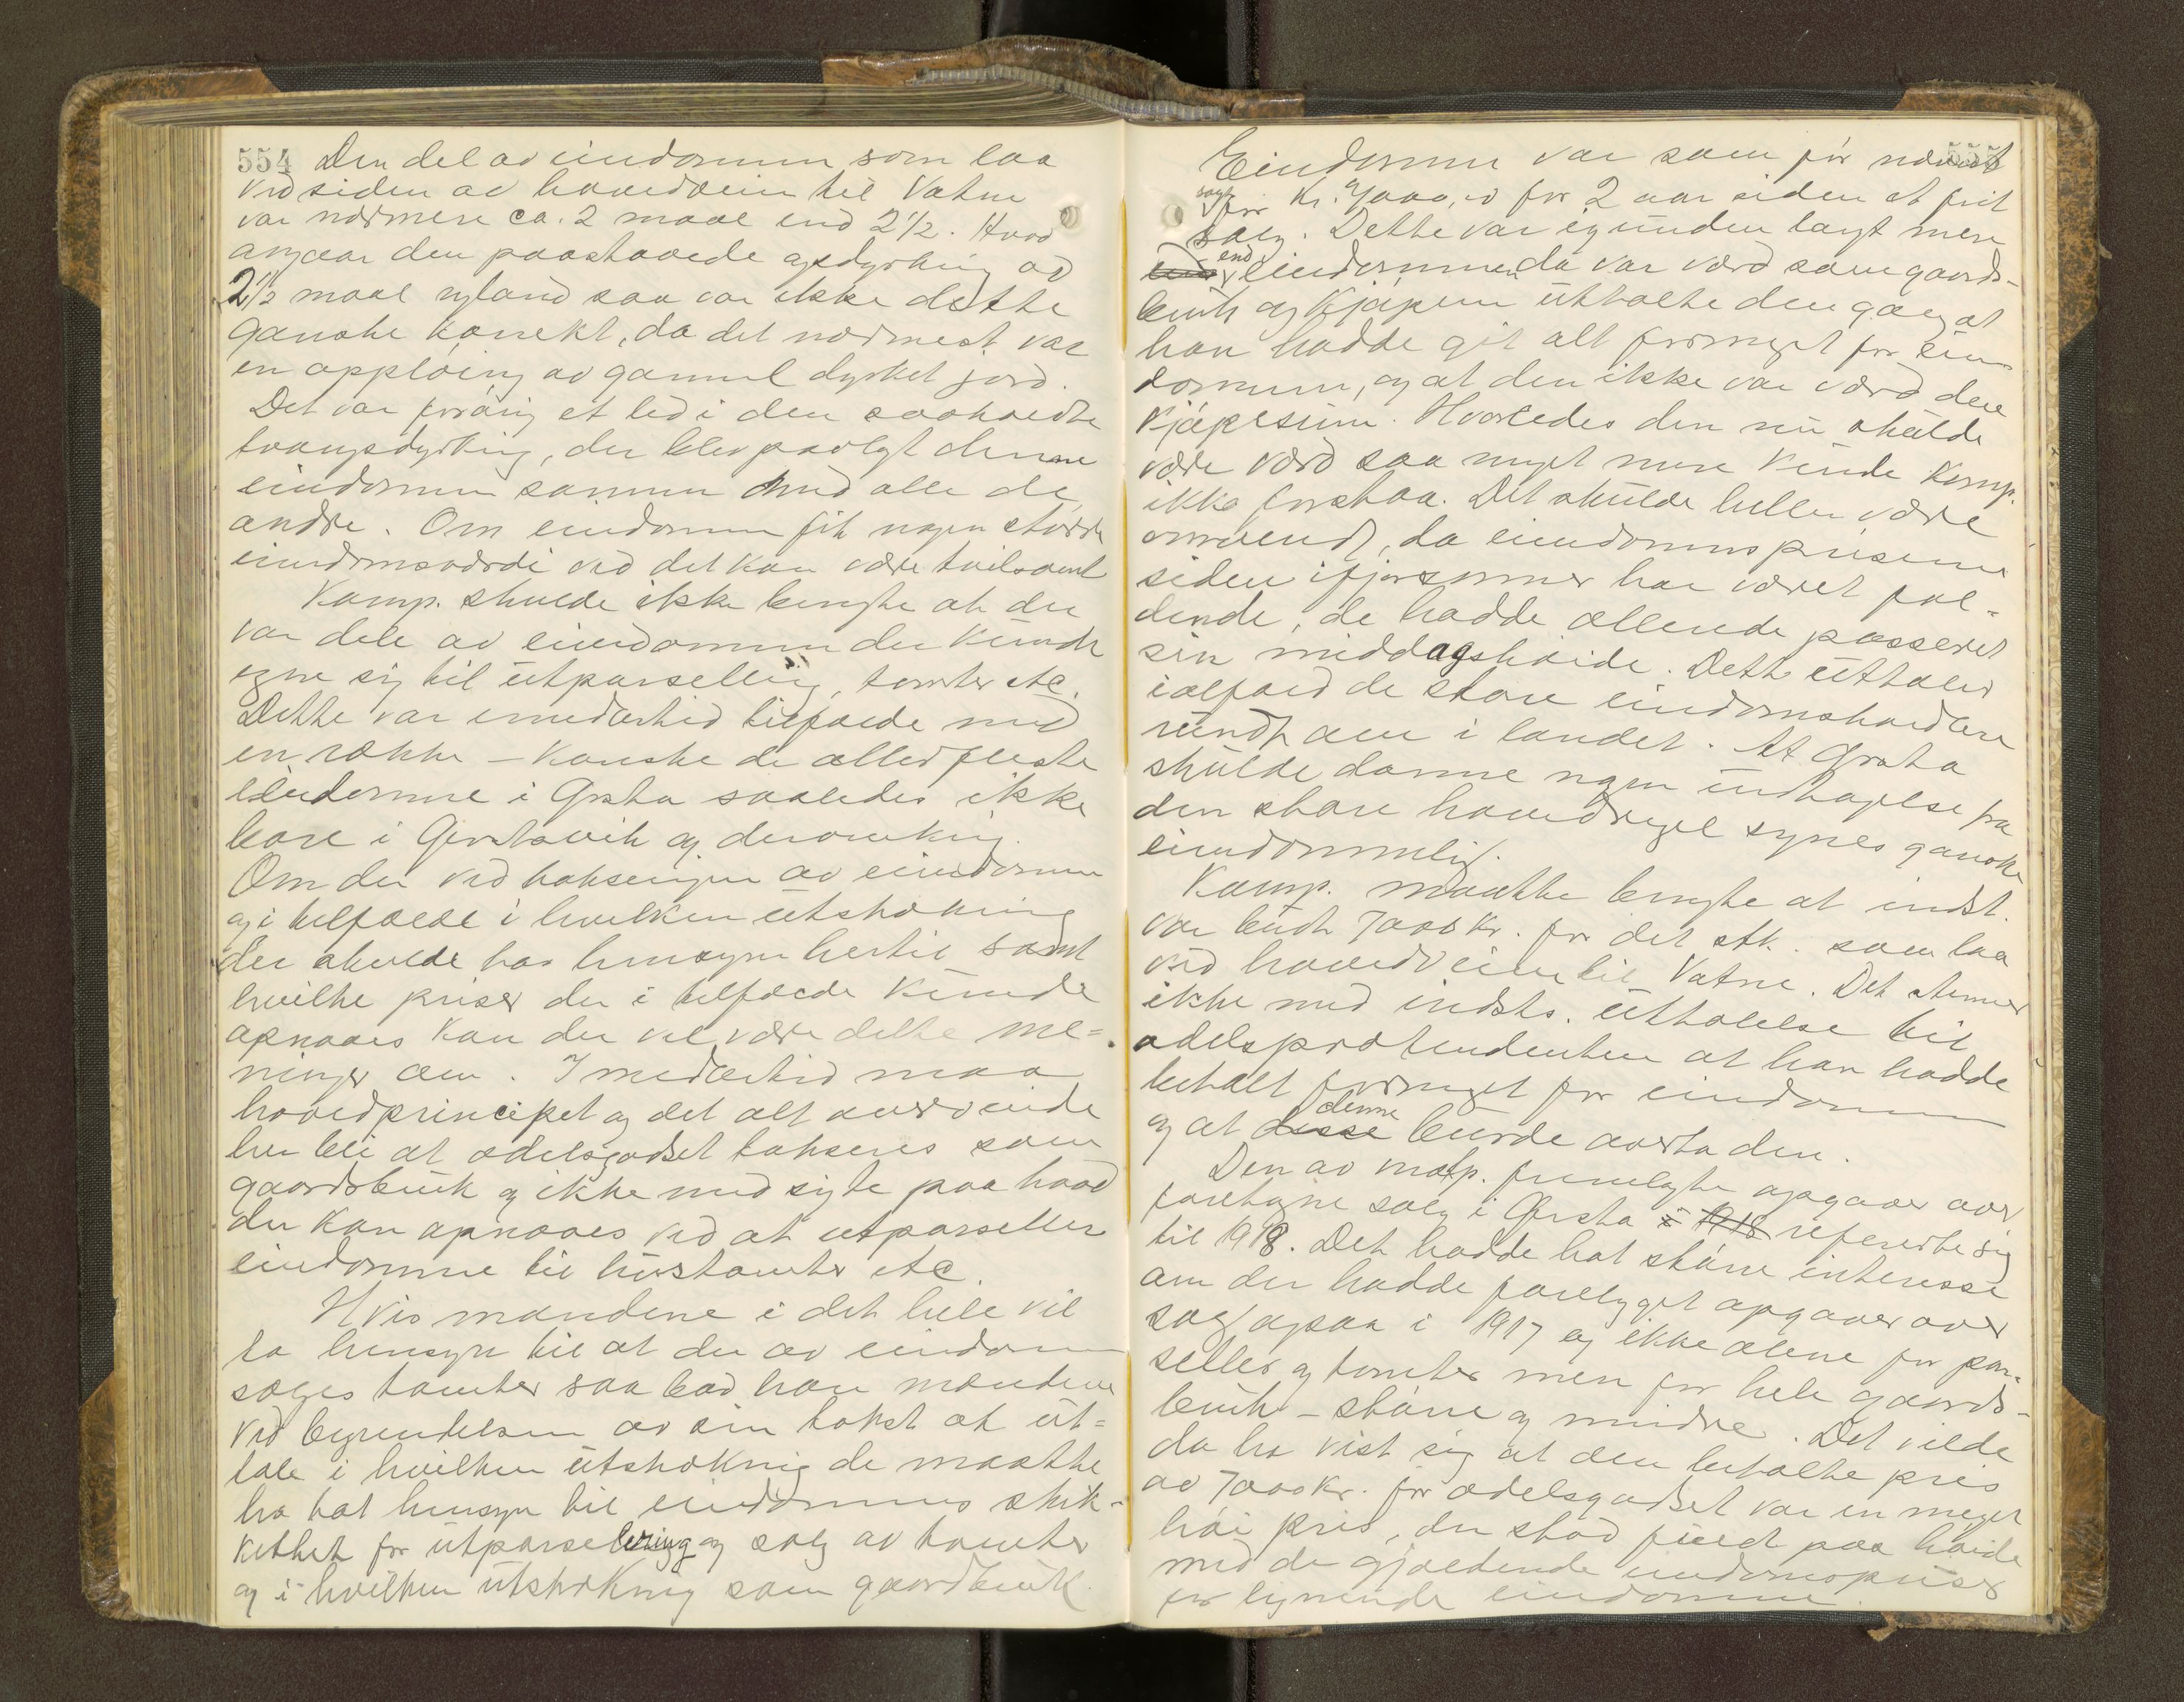 554 Den del av eiendommen som laa
ved siden av hovedveien til Vatne
var nærmere ca. 2 maal end 2½. Hvad
angaar den paastaaede opdyrking av
2½ maal nyland saa var ikke dette
ganske korrekt, da det nærmest var
en opplöing av gammel dyrket jord.
Det var forövrig et led i den saakaldte
tvangsdyrking, der blev paalagt denne
eiendommen sammen med alle de
andre. Om eiendommen fik nogen större
eiendomsværdi ved det kan være tvilsomt
Komp. skulde ikke benegte at der
var dele av eiendommen der kunde
egne sig til utparsellering, tomter etc.
Dette var imidlertid tilfælde med
en række – kanske de allerfleste
eiendomme i Ørsta saaledes ikke
bare i Ørstavik og deromkring.
Om der ved takseringen av eiendommen
og i tilfælde i hvilken utstrækning
der skulde has hensyn hertil samt
hvilke priser der i tilfælde kunde
opnaaes kan der vel være delte me=
ninger om. Imidlertid maa
hovedprincipet og det alt overveiende
her bli at odelsgodset takseres som
gaardsbruk og ikke med sigte paa hvad
der kan opnaaes ved at utparsellere
eiendomme til hustomter etc.
Hvis mændene i det hele vil
ta hensyn til at der av eiendommen
sælges tomter saa bad han mændene
ved begrundelsen av sin takst at ut=
tale i hvilken utstrækning de maatte
ha tat hensyn til eiendommens skik-
kethet for utparsellering og salg av tomter
og i hvilken utstrækning som gaardbruk.
555
Eiendommen var som för nævnt
solgt for kr. 7000,00 for 2 aar siden at frit
salg. Dette var igrunden langt mere
end end eiendommen da var værd som gaards-
bruk og kjöperen uttalte den gang at
han hadde git alt formeget for eien
dommen, og at den ikke var værd den
kjöpesum. Hvorledes den nu skulde
være værd saa meget mere kunde komp.
ikke forstaa. Det skulde heller være
omvendt, da eiendomspriserne
siden ifjorsommer har været fal-
dende, de hadde allerede passeret
sin middagshöide. Dette uttaler
ialfald de store eiendomshandlere
rundt om i landet. At Ørsta
skulde danne nogen undtagelse fra
den store hovedregel synes ganske
eiendommelig.
Komp. maatte benegte at indst.
var budt 7000 kr. for det stk. som laa
ved hovedveien til Vatne. Det stemmer
ikke med indsts. uttalelse til
odelsprætendenten at han hadde
betalt formeget for eiendommen
og at disse denne burde overta den.
Den av motp. fremlagte opgave over
foretagne salg i Ørsta i 1918 refererte sig
til 1918. Det hadde hat större interesse
om der hadde forelegget opgaver over
salg ogsaa i 1917 og ikke alene for par-
seller og tomter men for hele gaards-
bruk – större og mindre. Det vilde
da ha vist sig at den betalte pris
av 7000 kr. for odelsgodset var en meget
höi pris, der stod fuldt paa höide
med de gjældende eiendomspriser
for lignende eiendomme.